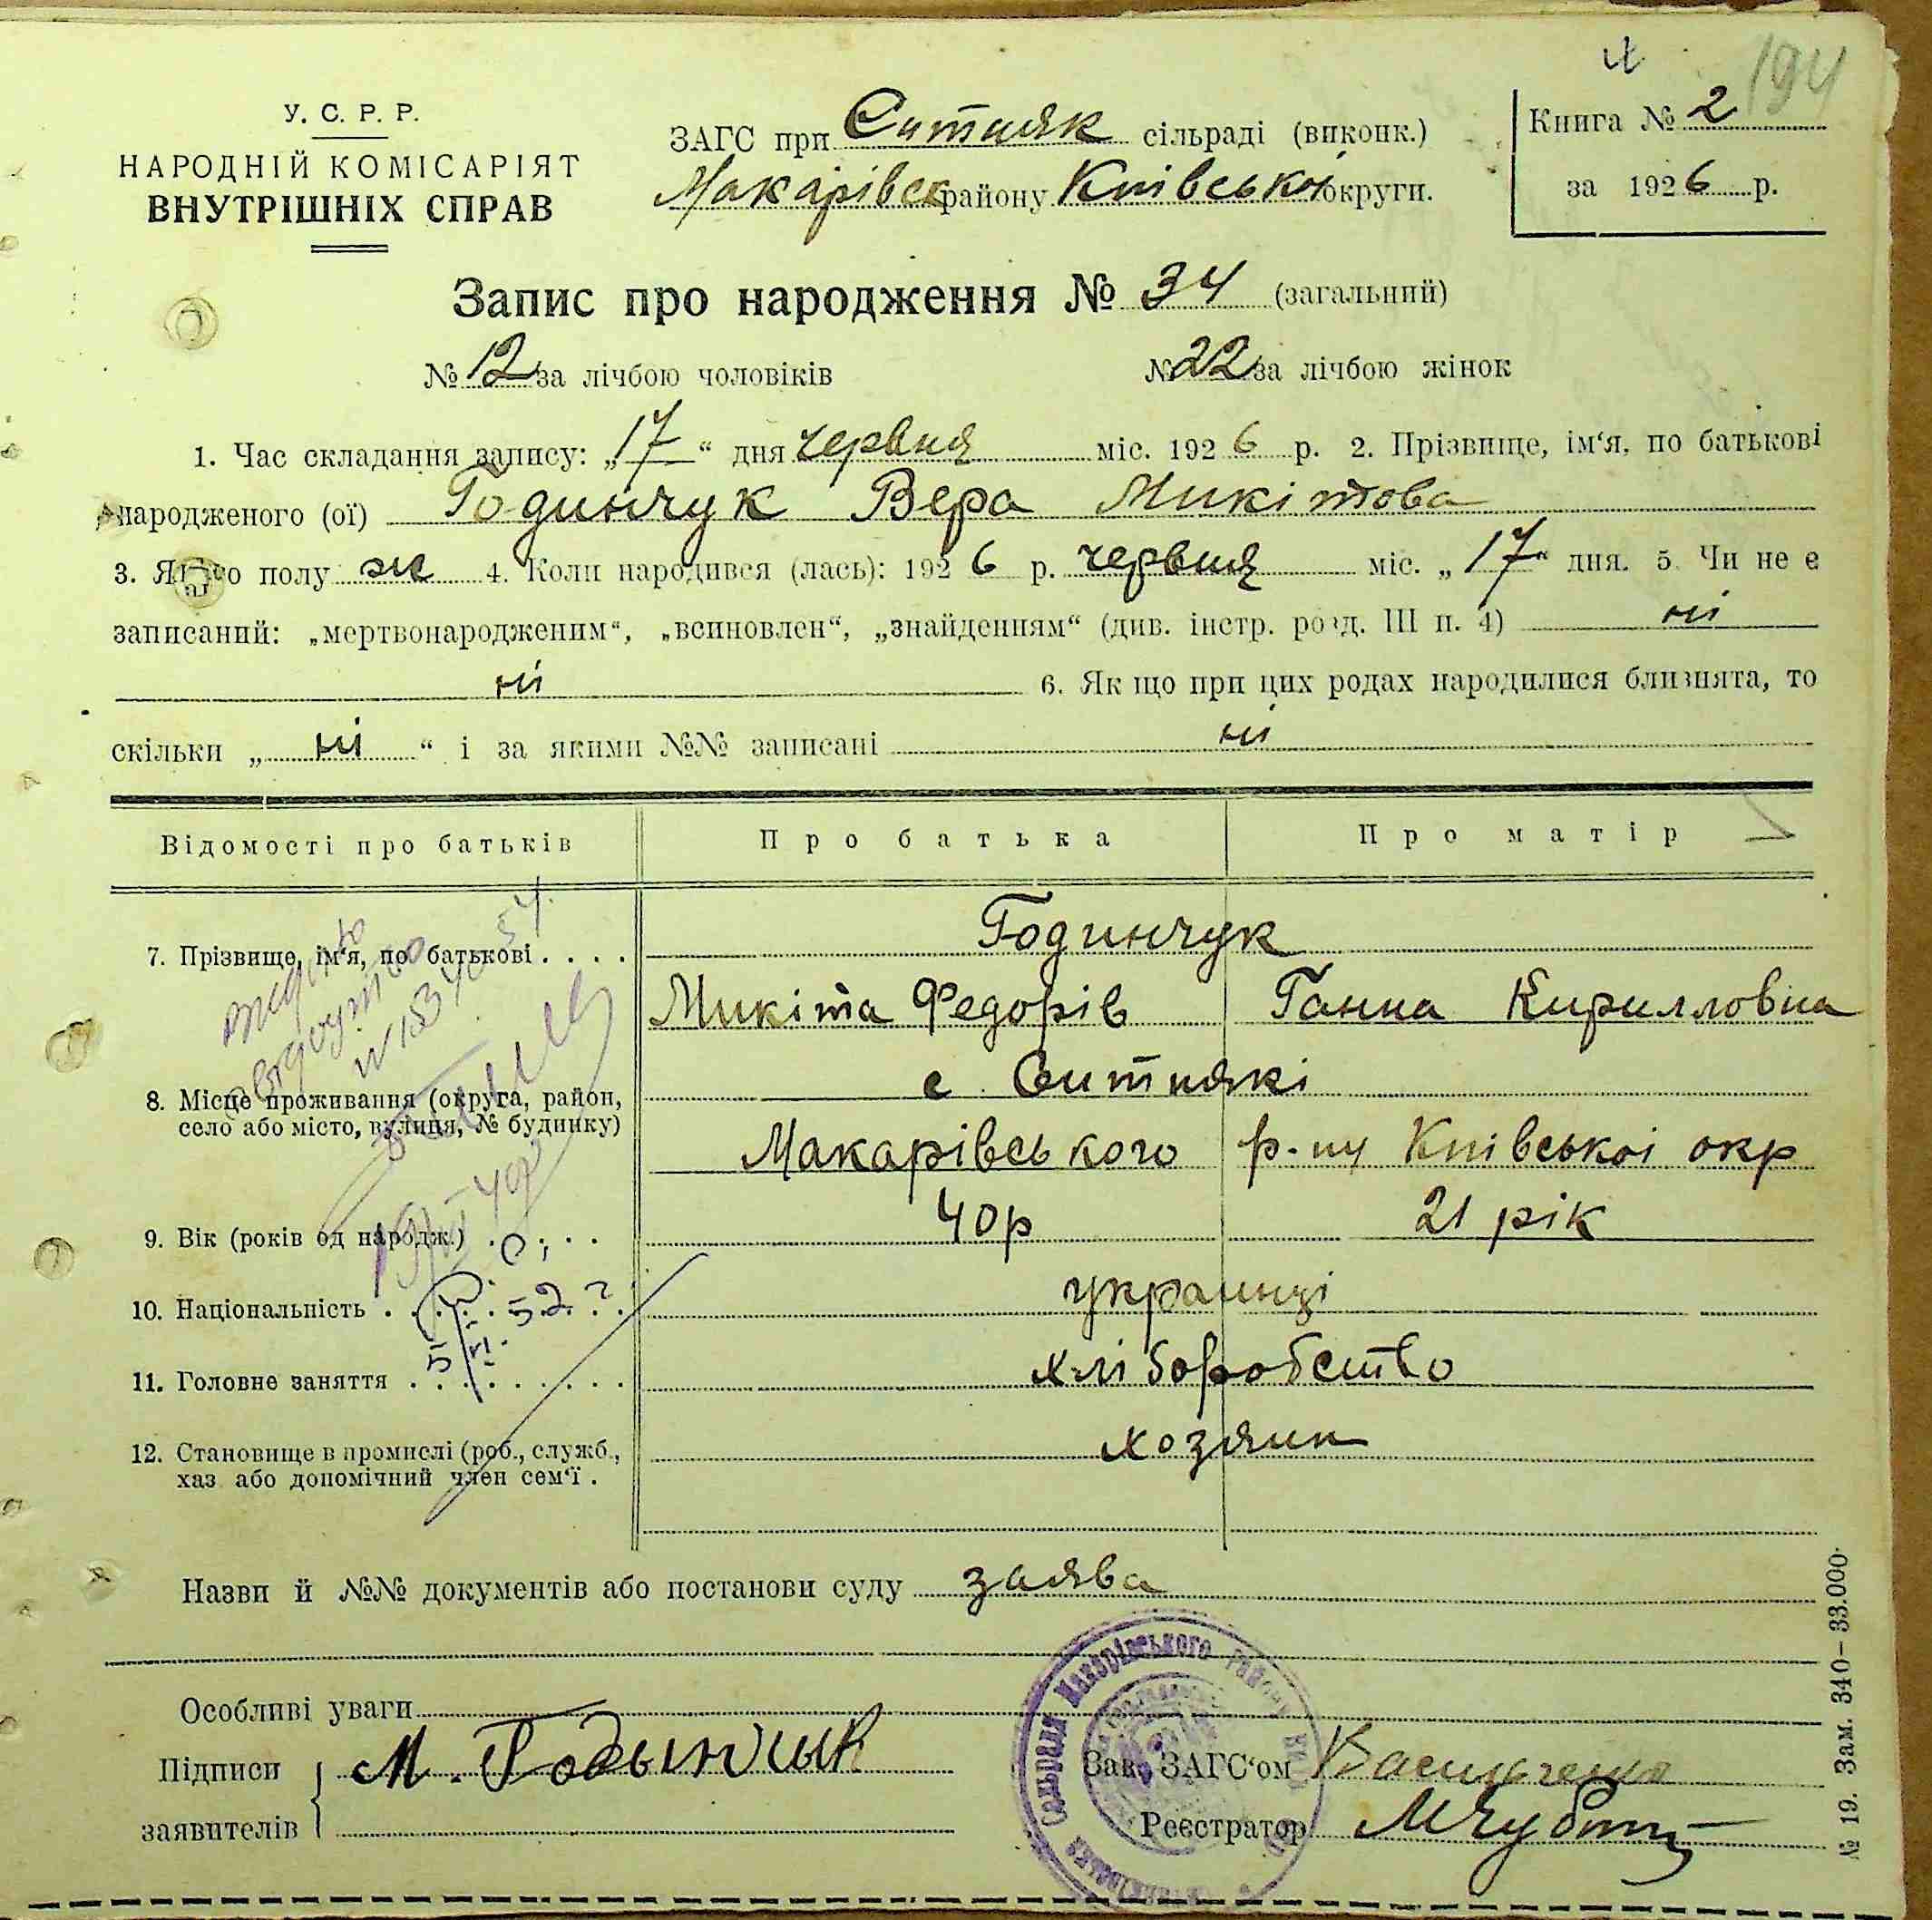 194
У. С. Р. Р.
НАРОДНІЙ КОМІСАРІЯТ
ВНУТРІШНІХ СПРАВ
ЗАГС при Ситняк сільраді (виконк.)
Макарівск району Київської округи.
Книга № 2
за 1926 р.
Запис про народження № 34 (загальний)
№ 12 за лічбою чоловіків № 22 за лічбою жінок
1. Час складання запису: „17“ дня червня міс. 1926 р. 2. Прізвище, ім‘я, по батькові
народженого (ої) Годинчук Вера Микітова
3. Якого полу ж 4. Коли народився (лась): 1926 р. червня міс. „17“ дня. 5. Чи не є
записаний: „мертвонародженим“, „всиновлен“, „знайденням“ (див. інстр. розд. III п. 4) ні
ні 6. Якщо при цих родах народилися близнята, то
скільки „ні“ і за якими №№ записані ні
Відомості про батьків Про батька Про матір
7. Прізвище, ім‘я, по батькові . . . . Годинчук
Микіта Федорів Ганна Кирилловна
8. Місце проживання (округа, район,
село або місто, вулиця, № будинку)
с. Ситнякі
Макарівського р-ну Київської окр
9. Вік (років од народж.) 40р 21 рік
10. Національність украинці
11. Головне заняття хліборобство
12. Становище в промислі (роб., служб.,
хаз. або допомічний член сем‘ї .
хозяин
Назви й №№ документів або постанови суду заява
Особливі уваги
Підписи
заявителів
М. Годынчик
Зав. ЗАГС‘ом Василенко
Реєстратор
Сельради Макарівського району
№ 19. Зам. 340—33.000.